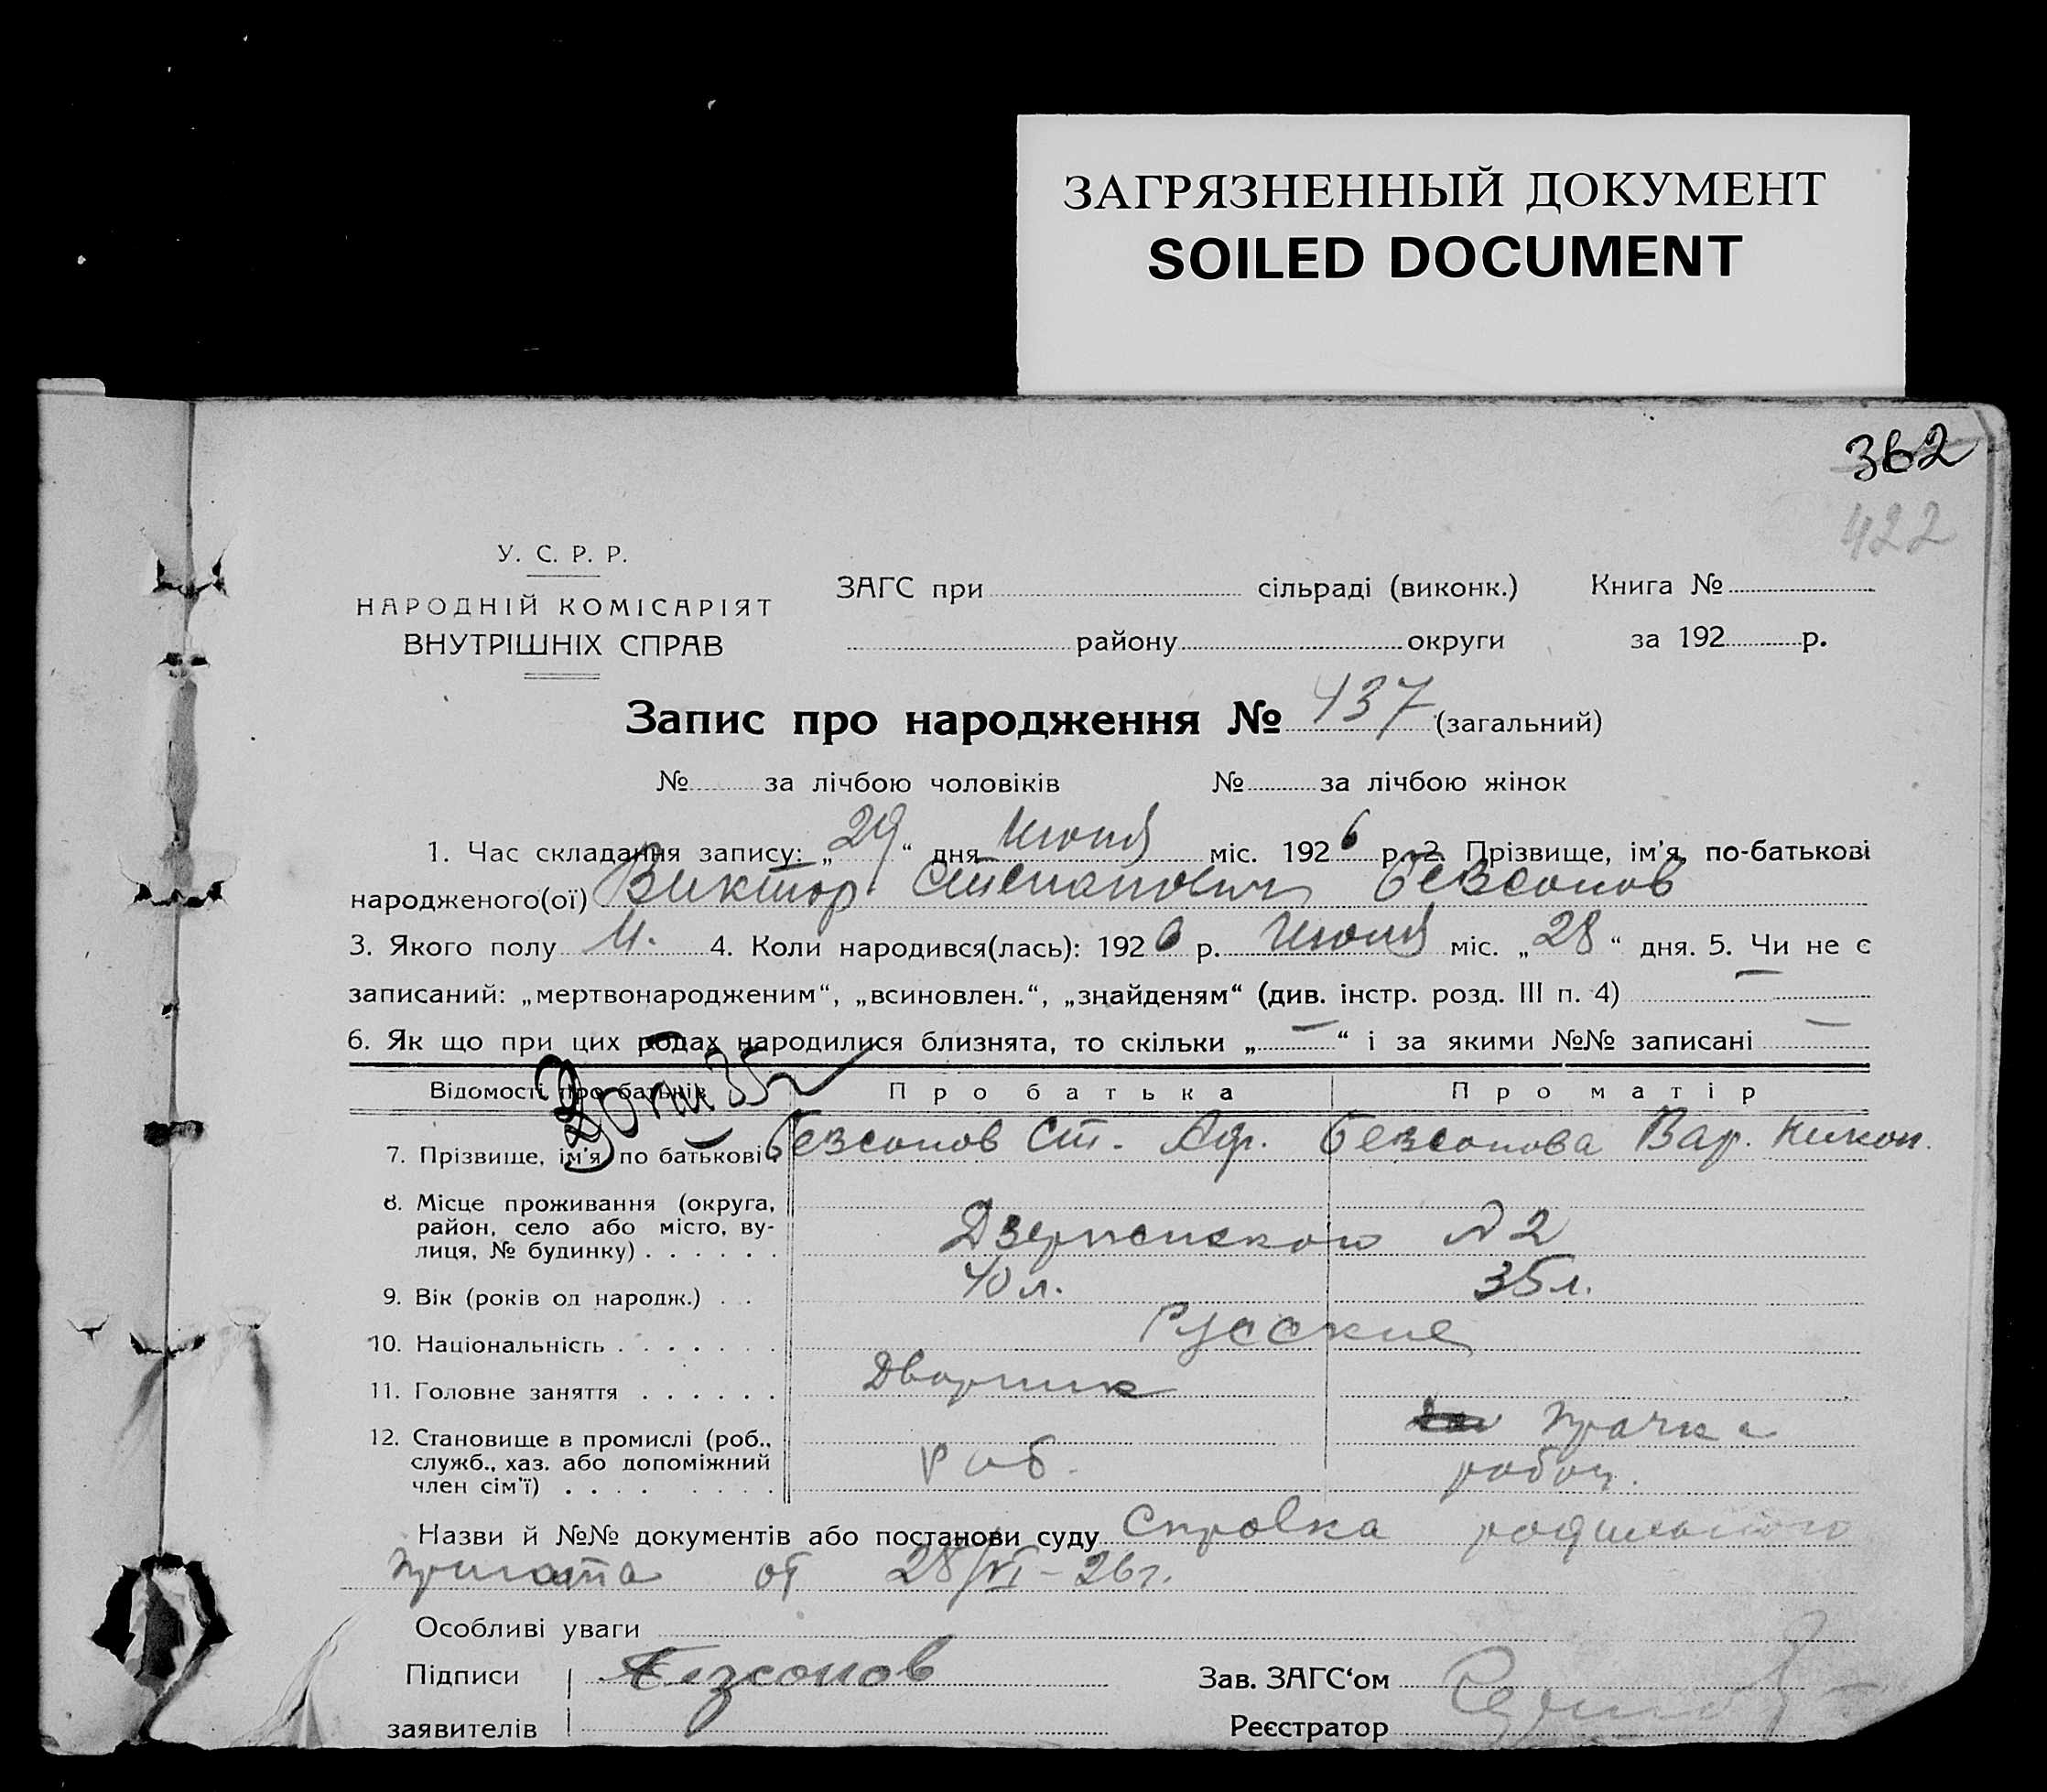 ЗАГРЯЗНЕННЫЙ ДОКУМЕНТ
SOILED DOCUMENT
362
422
У. С. Р. Р.
НАРОДНІЙ КОМІСАРІЯТ
ВНУТРІШНІХ СПРАВ
ЗАГС при сільраді (виконк.) Книга №
району округи за 192 р.
Запис про народження № 437 (загальний)
№ за лічбою чоловіків № за лічбою жінок
1. Час складання запису: „29“ дня Июня міс. 1926 р. 2. Прізвище, ім'я, по-батькові
народженого(ої) Виктор Степанович Безсонов
3. Якого полу М. 4. Коли народився(лась): 1926 р. Июня міс. „28“ дня. 5. Чи не є
записаний: „мертвонародженим“, „всиновлен.“, „знайденям“ (див. інстр. розд. III п. 4) —
6. Як що при цих родах народилися близнята, то скільки „—“ і за якими №№ записані —
Відомості про батьків Про батька Про матір
7. Прізвище, ім'я, по батькові Безсонов Ст. Аф. Безсонова Вар. Никон.
8. Місце проживання (округа,
район, село або місто, ву-
лиця, № будинку) . . . . . . Дзержинского № 2
9. Вік (років од народж.) . . 40 л. 35 л.
10. Національність . . . . . . . Русские
11. Головне заняття . . . . . . Дворник
Прачка
12. Становище в промислі (роб.,
служб., хаз. або допоміжний
член сім'ї) . . . . . . . . Раб. работ.
Назви й №№ документів або постанови суду Справка родильного
приюта от 28/VI-26 г.
Особливі уваги
Підписи Безсонов Зав. ЗАГС'ом
заявителів Реєстратор